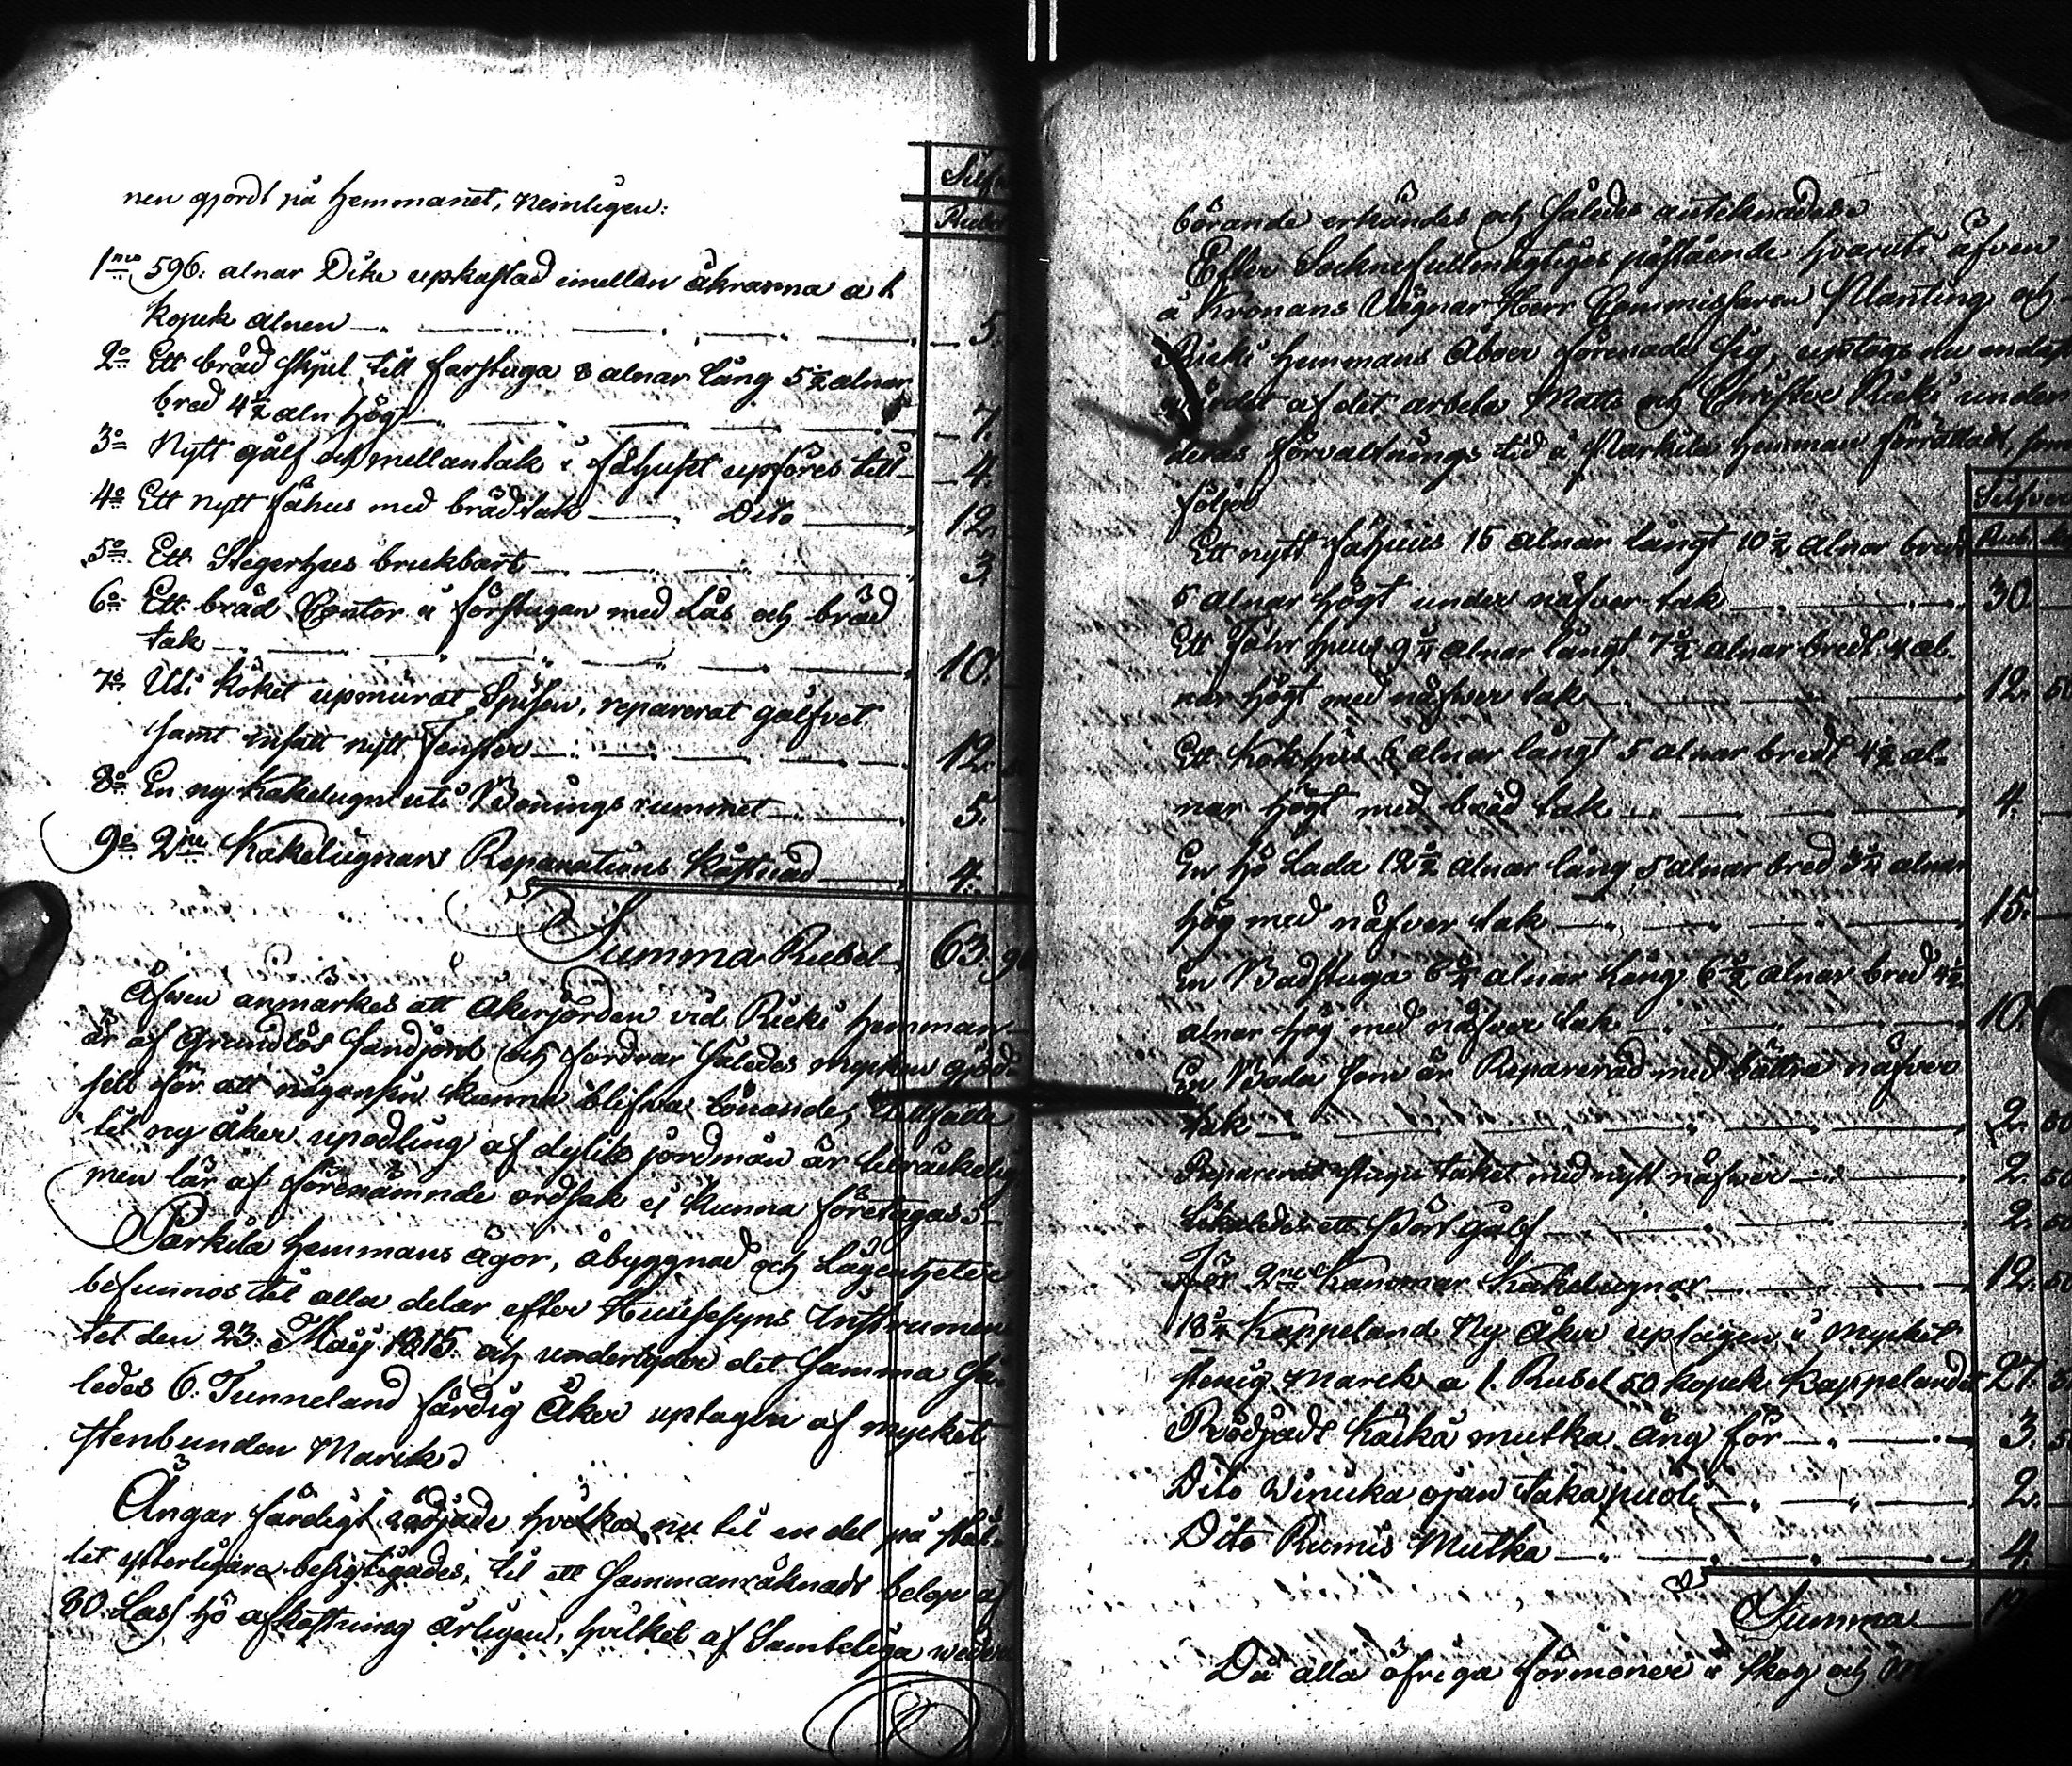 nen gjordt på Hemmanet, Nemligen:
Silf
Rubel
1mo 596. alnar Dike upkastad imellan åkrarna a 1
kopek alnen 5.
2o Ett bräd skjul till farstuga 8 alnar lång 5½ alnar
bred 4½ aln hög 7.
3o Nytt gålf och mellantak i fähuset upföres till 4.
4o Ett nytt fähus med brädtak Dito 12.
5o Ett Stegerhus brukbart 3.
6o Ett bräd Contor i förstugan med Lås och bräd
tak 10.
7o Uti köket upmurat Spisen, reparerat gålfvet
samt insatt nytt Fenster 12.
8o En ny Kakelugn uti Bonings rummet 5.
9o 2ne Kakelugnars Reparations Kåstnad 4.
Summa Rubel 63. 96
Äfwen anmärkes att åkerjorden vid Ricki Hemman
är af Grundlös Sandjord och fordrar således mycken gjöd-
sell för att någonsin kunna blifwa lönande, Tillfälle
til ny åker upodling af dylik jordmån är tilräckelig
men lär af förenämnde ordsak ej kunna företagas.
Parkila Hemmans ägor, åbyggnad och Lägenheter
befunnos til alla delar efter Huusesyns Instrumen
tet den 23 Maij 1815. och undertyder det samma så-
ledes 6. Tunneland färdig Åker uptagen af mycket
stenbunden Marck
Ängar färdigt rödjade hvilka nu til en del på stäl-
let ytterligare besigtigades, til ett sammanräknadt belop af
80 Lass hö afkastning årligen, hvilket af Samteliga weder
börande erkändes och således antecknades.
Efter Sockne fullmägtiges påstående hvaruti äfven
å Kronans Vägnar Herr Commissarien Planting och
Ricki Hemmans Åboer förenade sig, uptogs nu endast
wärdet af det arbete Matts och Christer Ricki under
deras förvaltnings tid å Parkila Hemman förrättadt, som
följer
Silfver
Rub.
Ett nytt fähus 15 alnar långt 10½ alnar bredt
5 alnar högt under näfver tak 30.
Ett Fåhr huus 9¼ alnar långt 7½ alnar bredt 4 al-
nar högt med näfwer tak 12. 50
Ett Kok hus 6 alnar långt 5 alnar bredt 4½ al-
nar högt med bräd tak 4.
En hö Lada 12½ alnar lång 5 alnar bred 3½ alnar
hög med näfver tak 15.
En Badstuga 6½ alnar lång 6½ alnar bred 4½
alnar hög med näfver tak 10.
En Boda som är Reparerad med bättre näfver
tak 2. 50
Reparerat stugu taket med nytt näfwer 2. 50
Likaledes ett Pört gålf 2. 50
För 2ne Kammar Kakelugnar 12. 50
18¼ Kappeland Ny Åker uptagen i mycket
stenig Marck a 1. Rubel 50 kopek Kappelandet 27.
Rödjadt Käckä mutka äng för 3.
Dito Winuka ojan takapuoli 2.
Dito Rumis Mutka 4.
Summa
Då alla öfriga förmoner i skog och